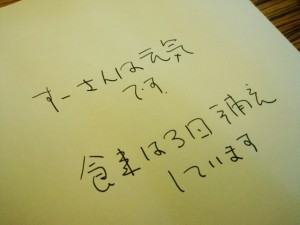 すーさんは元気
です.
食事は3回補充
しています